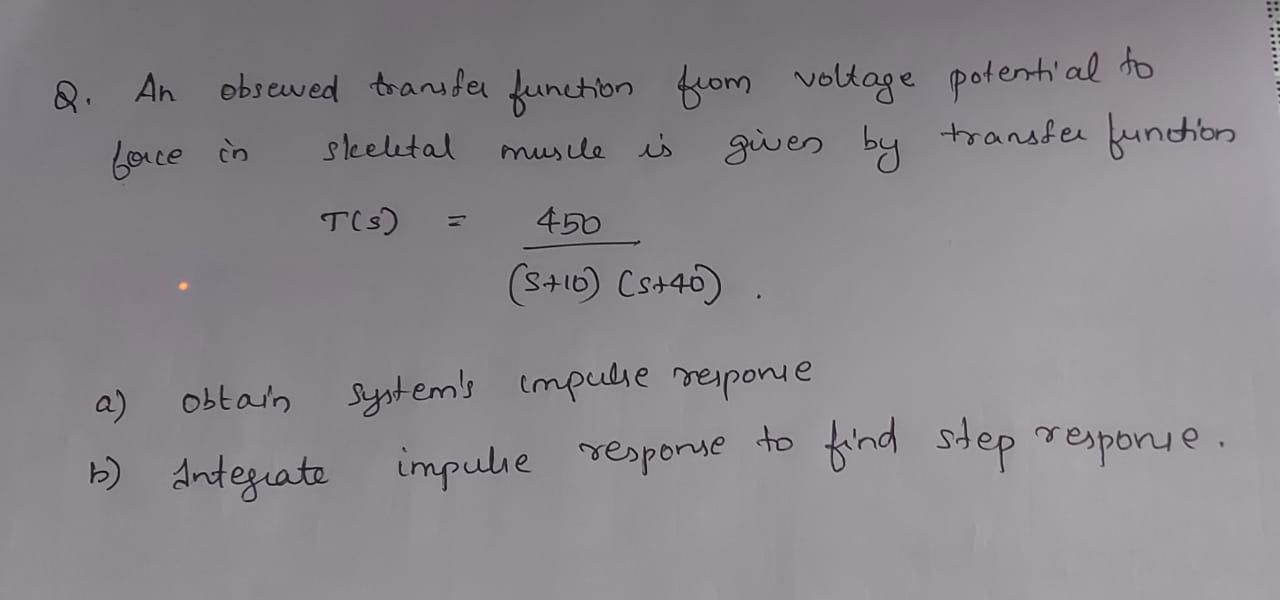 Q. An observed transfer function from voltage potential to
force in skeletal muscle is given by transfer function
T(s) = 450
(s+10) (s+40) .
a) obtain system's impulse response
b) Integrate impulse response to find step response.